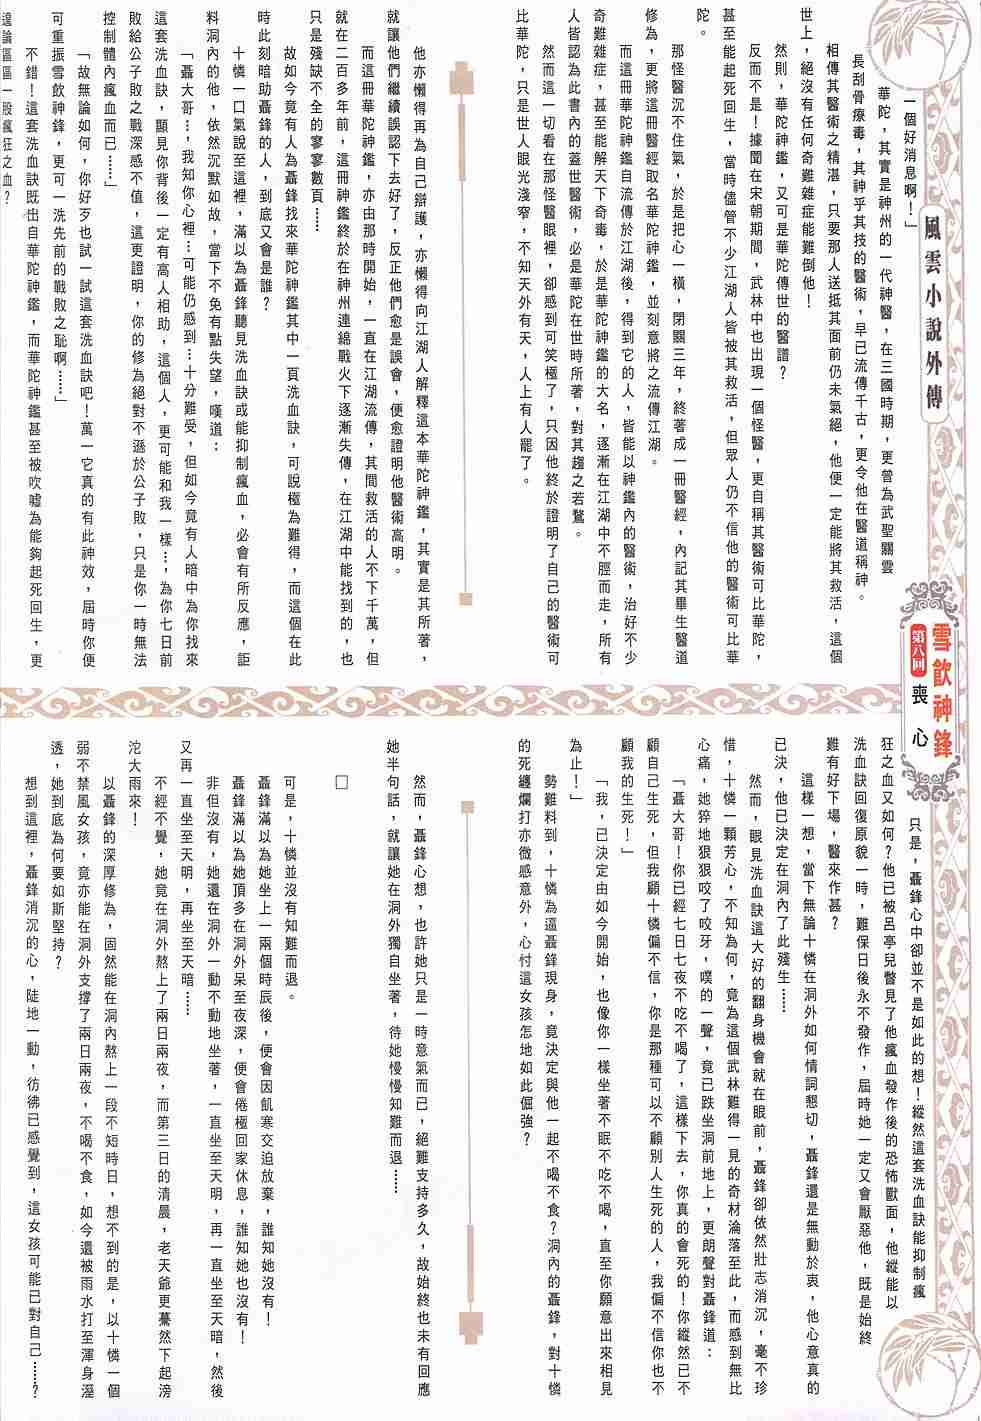 風雲小說外傳
雪飲神鋒
第八回
喪心
一個好消息啊！」
華陀，其實是神州的一代神醫，在三國時期，更曾為武聖關雲
長刮骨療毒，其神乎其技的醫術，早已流傳千古，更令他在醫道稱神。
相傳其醫術之精湛，只要那人送抵其面前仍未氣絕，他便一定能將其救活，這個
世上，絕沒有任何奇難雜症能難倒他！
然則，華陀神鑑，又可是華陀傳世的醫譜？
反而不是！據聞在宋朝期間，武林中也出現一個怪醫，更自稱其醫術可比華陀，
甚至能起死回生，當時儘管不少江湖人皆被其救活，但眾人仍不信他的醫術可比華
陀。
那怪醫沉不住氣，於是把心一橫，閉關三年，終著成一冊醫經，內記其畢生醫道
修為，更將這冊醫經取名華陀神鑑，並刻意將之流傳江湖。
而這冊華陀神鑑自流傳於江湖後，得到它的人，皆能以神鑑內的醫術，治好不少
奇難雜症，甚至能解天下奇毒，於是華陀神鑑的大名，逐漸在江湖中不脛而走，所有
人皆認為此書內的蓋世醫術，必是華陀在世時所著，對其趨之若鶩。
然而這一切看在那怪醫眼裡，卻感到可笑極了，只因他終於證明了自己的醫術可
比華陀，只是世人眼光淺窄，不知天外有天，人上有人罷了。
他亦懶得再為自己辯護，亦懶得向江湖人解釋這本華陀神鑑，其實是其所著，
就讓他們繼續誤認下去好了，反正他們愈是誤會，便愈證明他醫術高明。
而這冊華陀神鑑，亦由那時開始，一直在江湖流傳，其間救活的人不下千萬，但
就在二百多年前，這冊神鑑終於在神州連綿戰火下逐漸失傳，在江湖中能找到的，也
只是殘缺不全的寥寥數頁……
故如今竟有人為聶鋒找來華陀神鑑其中一頁洗血訣，可說極為難得，而這個在此
時此刻暗助聶鋒的人，到底又會是誰？
十憐一口氣說至這裡，滿以為聶鋒聽見洗血訣或能抑制瘋血，必會有所反應，詎
料洞內的他，依然沉默如故，當下不免有點失望，嘆道：
「聶大哥…，我知你心裡…可能仍感到…十分難受，但如今竟有人暗中為你找來
這套洗血訣，顯見你背後一定有高人相助，這個人，更可能和我一樣…，為你七日前
敗給公子敗之戰深感不值，這更證明，你的修為絕對不遜於公子敗，只是你一時無法
控制體內瘋血而已……」
「故無論如何，你好歹也試一試這套洗血訣吧！萬一它真的有此神效，屆時你便
可重振雪飲神鋒，更可一洗先前的戰敗之恥啊……」
不錯！這套洗血訣既出自華陀神鑑，而華陀神鑑甚至被吹噓為能夠起死回生，更
遑論區區一股瘋狂之血？
只是，聶鋒心中卻並不是如此的想！縱然這套洗血訣能抑制瘋
狂之血又如何？他已被呂亭兒瞥見了他瘋血發作後的恐怖獸面，他縱能以
洗血訣回復原貌一時，難保日後永不發作，屆時她一定又會厭惡他，既是始終
難有好下場，醫來作甚？
這樣一想，當下無論十憐在洞外如何情詞懇切，聶鋒還是無動於衷，他心意真的
已決，他已決定在洞內了此殘生……
然而，眼見洗血訣這大好的翻身機會就在眼前，聶鋒卻依然壯志消沉，毫不珍
惜，十憐一顆芳心，不知為何，竟為這個武林難得一見的奇材淪落至此，而感到無比
心痛，她猝地狠狠咬了咬牙，噗的一聲，竟已跌坐洞前地上，更朗聲對聶鋒道：
「聶大哥！你已經七日七夜不吃不喝了，這樣下去，你真的會死的！你縱然已不
顧自己生死，但我顧十憐偏不信，你是那種可以不顧別人生死的人，我偏不信你也不
顧我的生死！」
「我，已決定由如今開始，也像你一樣坐著不眠不吃不喝，直至你願意出來相見
為止！」
勢難料到，十憐為逼聶鋒現身，竟決定與他一起不喝不食？洞內的聶鋒，對十憐
的死纏爛打亦微感意外，心忖這女孩怎地如此倔強？
然而，聶鋒心想，也許她只是一時意氣而已，絕難支持多久，故始終也未有回應
她半句話，就讓她在洞外獨自坐著，待她慢慢知難而退……
□
可是，十憐並沒有知難而退。
聶鋒滿以為她坐上一兩個時辰後，便會因飢寒交迫放棄，誰知她沒有！
聶鋒滿以為她頂多在洞外呆至夜深，便會倦極回家休息，誰知她也沒有！
非但沒有，她還在洞外一動不動地坐著，一直坐至天明，再一直坐至天暗，然後
又再一直坐至天明，再坐至天暗……
不經不覺，她竟在洞外熬上了兩日兩夜，而第三日的清晨，老天爺更驀然下起滂
沱大雨來！
以聶鋒的深厚修為，固然能在洞內熬上一段不短時日，想不到的是，以十憐一個
弱不禁風女孩，竟亦能在洞外支撐了兩日兩夜，不喝不食，如今還被雨水打至渾身溼
透，她到底為何要如斯堅持？
想到這裡，聶鋒消沉的心，陡地一動，彷彿已感覺到，這女孩可能已對自己……？